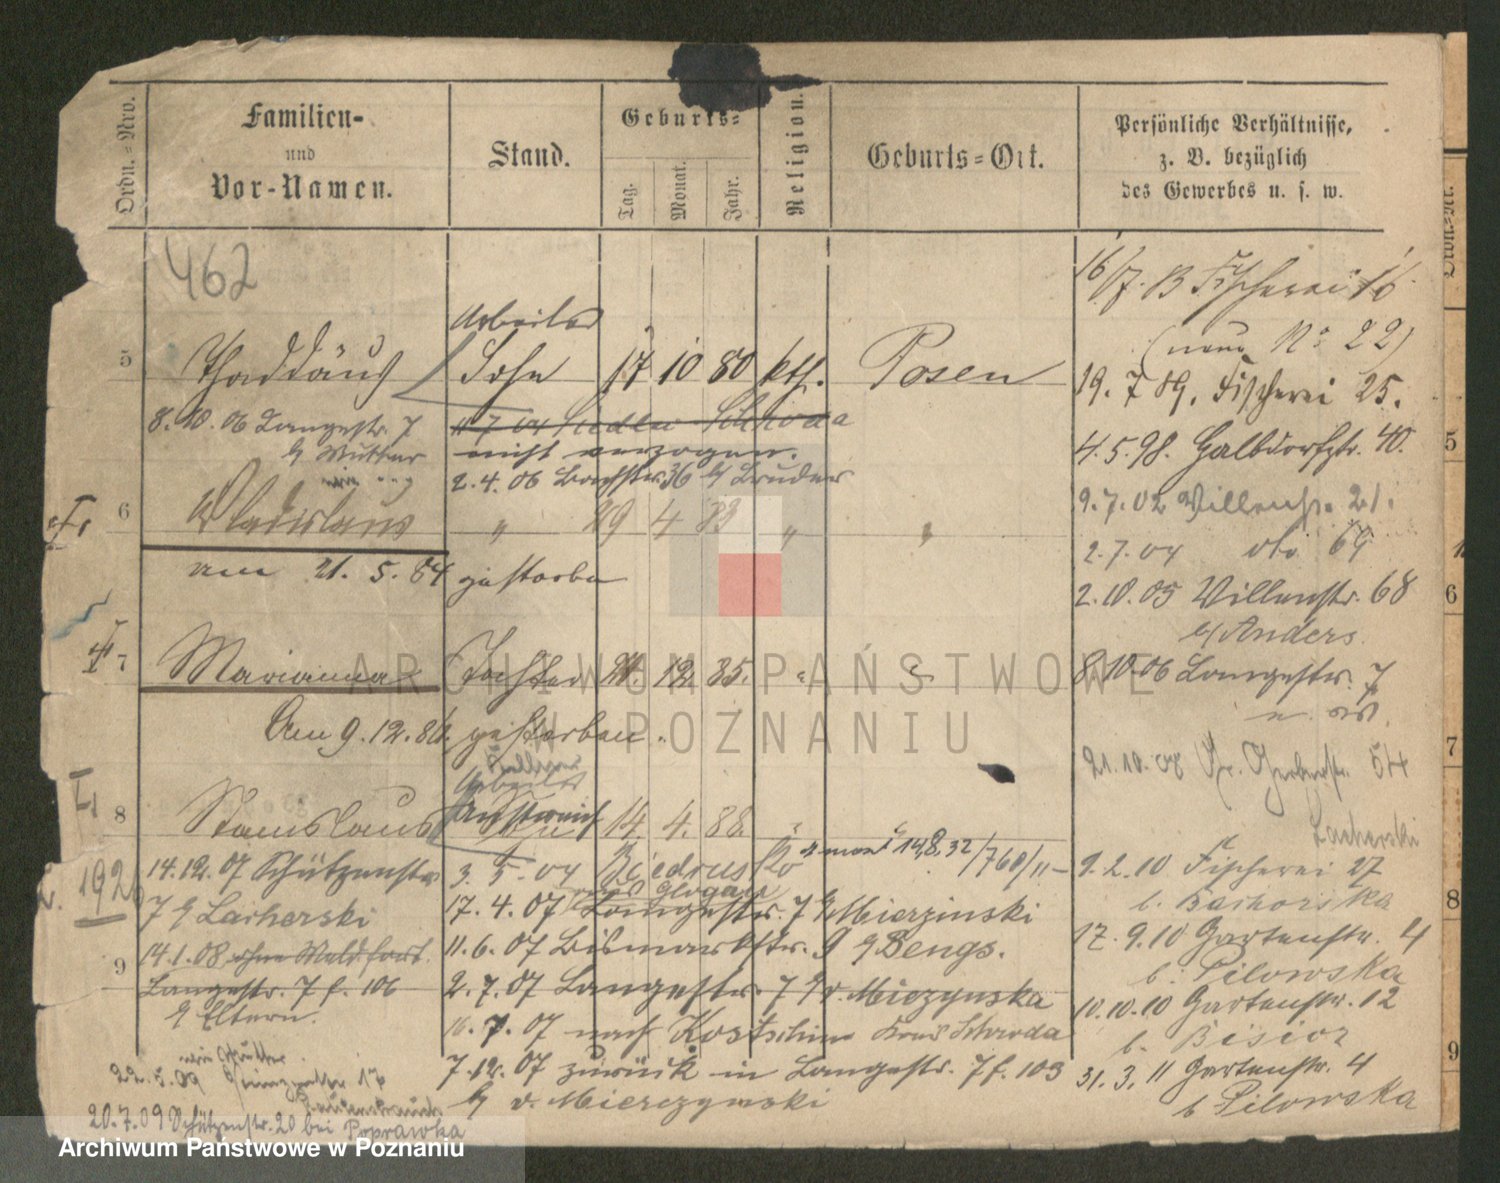 Ordn.=Nro.
Familien-
und
Vor-Namen.
Stand.
Geburts=
Tag.
Monat.
Jahr.
Religion.
Geburts=Ort.
Persönliche Verhältnisse,
z. B. bezüglich
des Gewerbes u. s. w.
462
16/7. B Fischerei 16
(neue No 22)
Arbeiter
5 Thaddäus Sohn 17 10 80 kth. Posen
19. 7 89. Fischerei 25.
8.10.06 Langestr. 7
b/ Mutter
nicht verzogen.
4.5.98. Halbdorfstr. 40.
2.4.06 36 b/ Bruder
9.7.02 Villenstr. 21.
6 Wladislaus " 29 4 83 " "
2.7.04 69
am 21. 5. 84 gestorben
2.10.05 Villenstr. 68
b/ Anders.
7 Marianna Tochter 12. 85. " "
8.10.06 Langestr. 7
Am 9.12.86. gestorben.
21.10.08 Gr. Gerberstr. 54
Lacherski
8 Stanislaus 14 4. 88. " "
14.8.32/760/11-
14.12.07 Schützenstr
3. 5. 04 Biedrusko
9.2.10 Fischerei 27
b. Bachorska
1926
nach Glogau
7 b/ Lacherski
17.4.07 Langestr. 7 b/ Mierzinski
17.9.10 Gartenstr. 4
b. Pilowska
9 14.1.08 ohne Meldg fort.
11.6.07 Bismarckstr. 9 b/ Bengs.
Langestr. 7 f. 106
2.7.07 Langestr. 7 b/ v. Miezynska
10.10.10 Gartenstr. 12
b. Bisior
b/ Eltern.
16. 7. 07 nach Kostschin Kreis Schroda
7.12.07 zurück in Langestr. 7 f. 103
31.3.11 Gartenstr. 4
b. Pilowska
b/ v. Mierczynski
22.5.09 17
20.7.09 Schützenstr. 20 bei Poprawka
5
6
7
8
9
ARCHIWUM PAŃSTWOWE
W POZNANIU
Archiwum Państwowe w Poznaniu